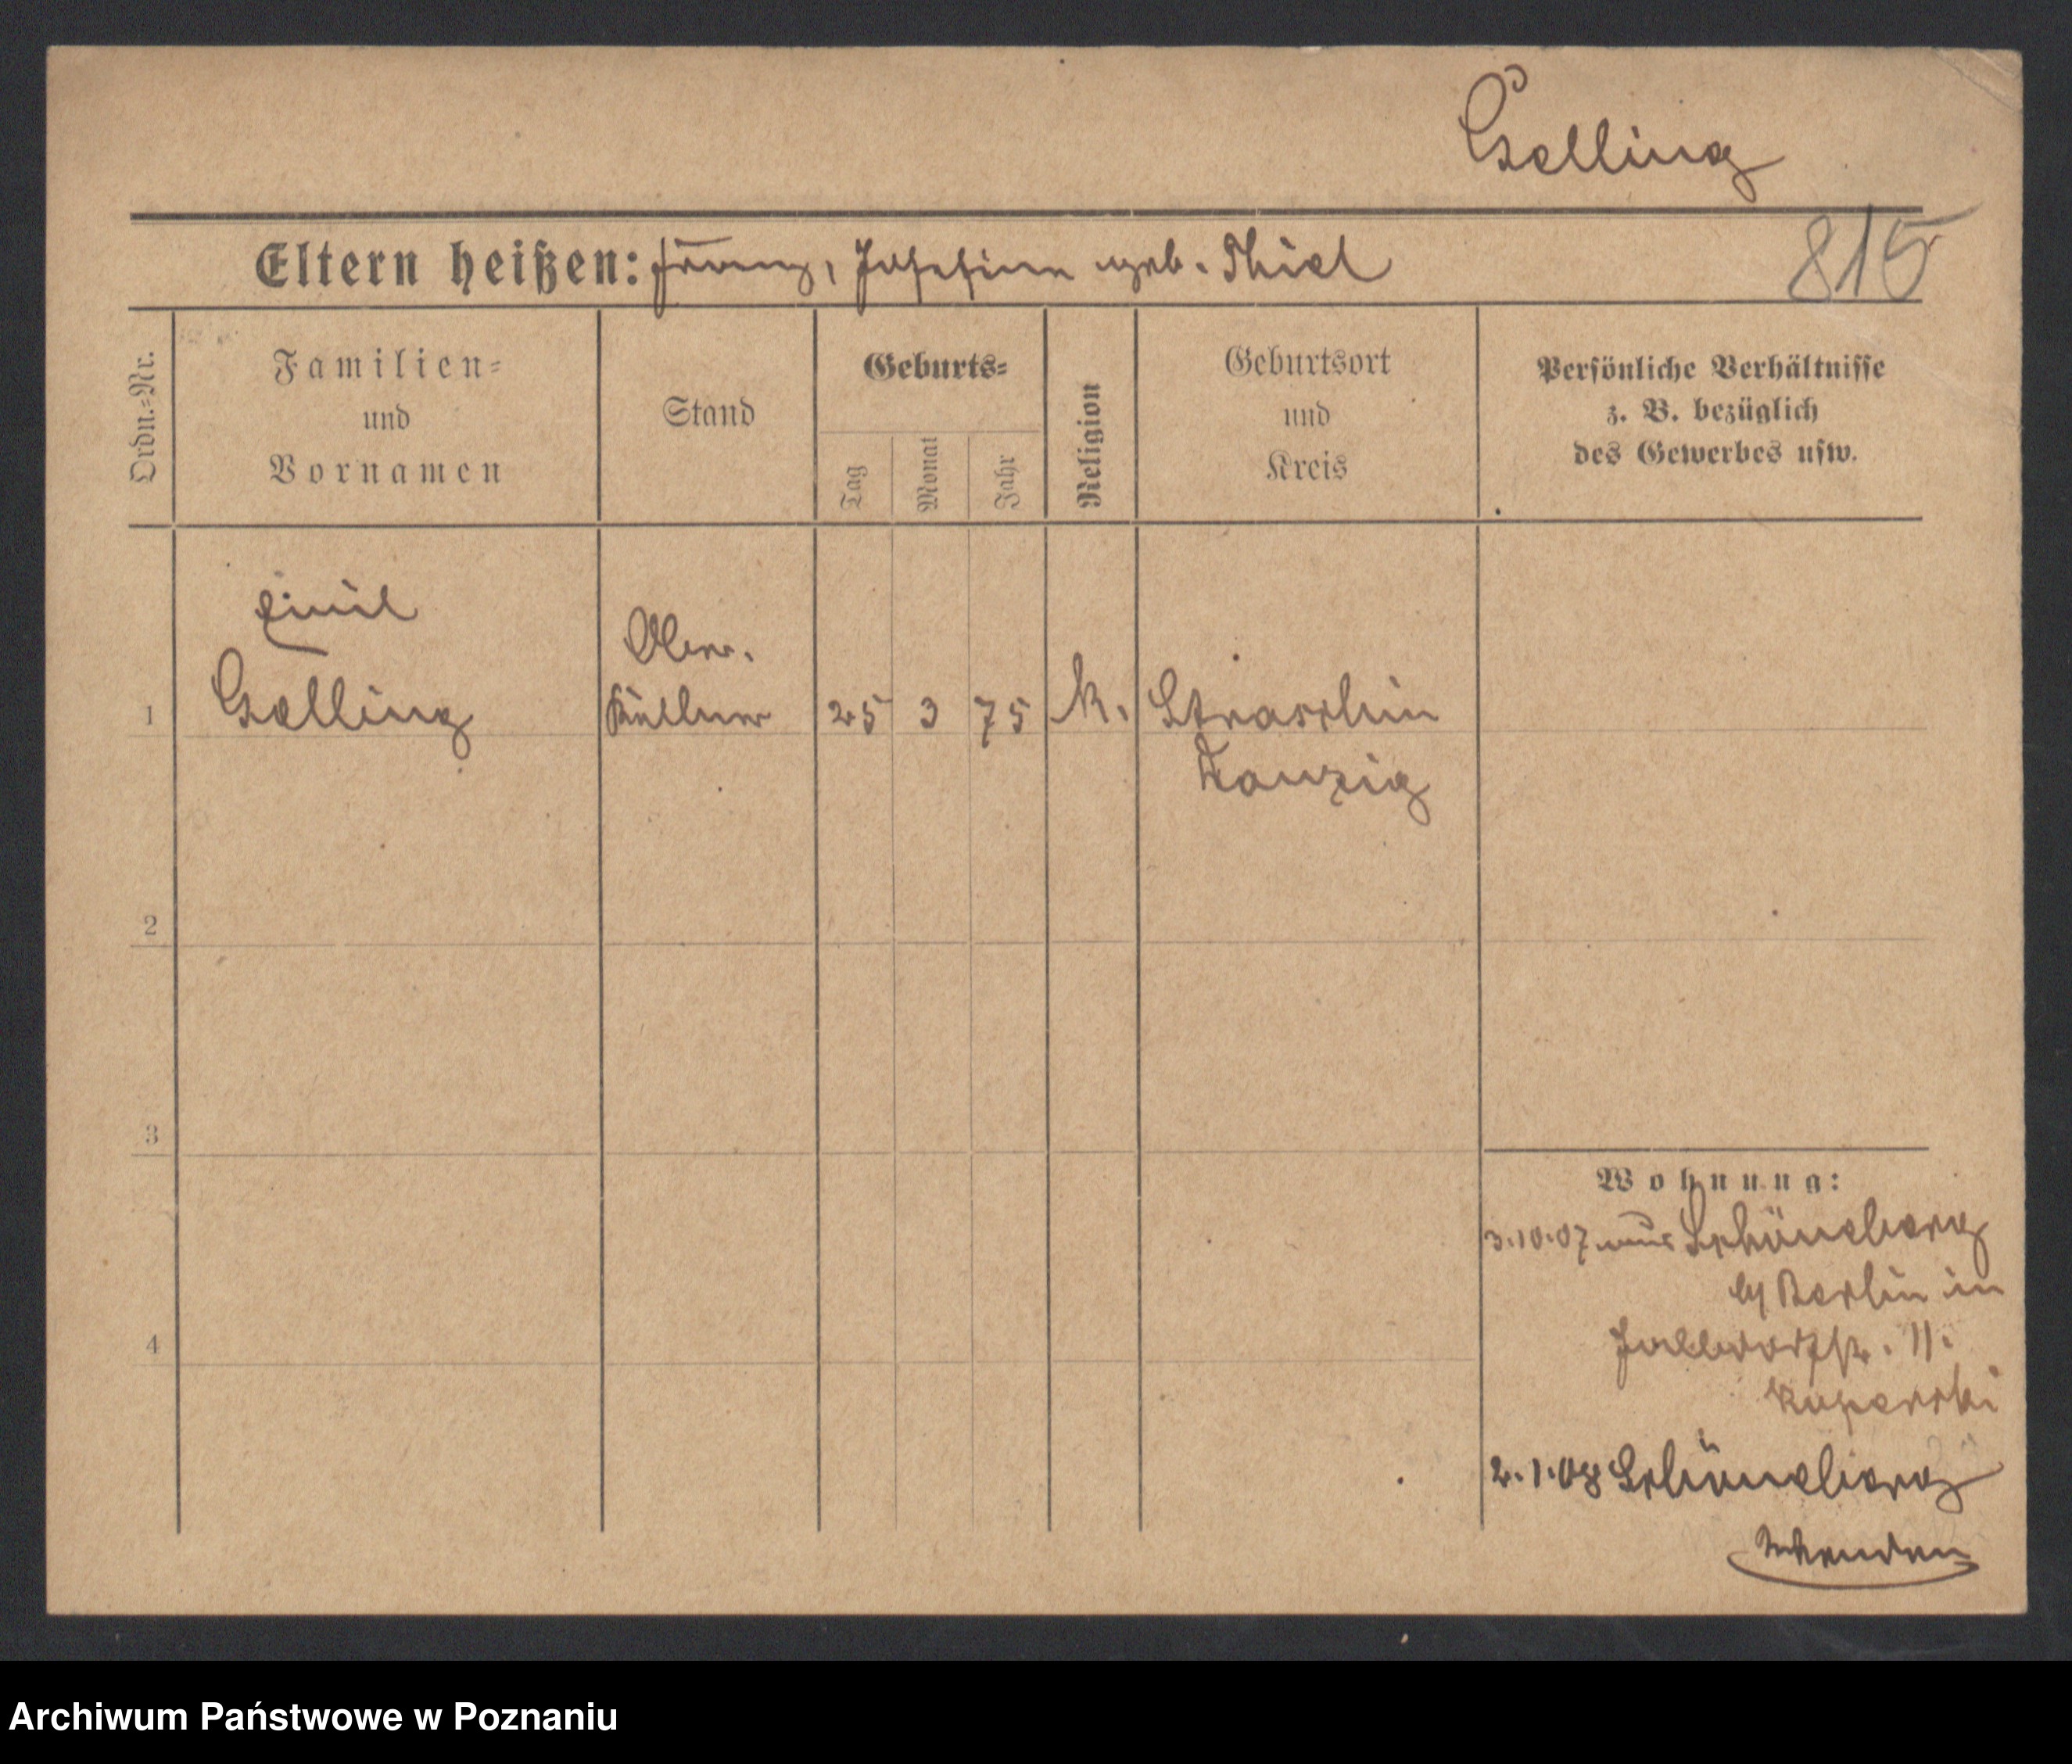 Gelling
815
Eltern heißen: Franz, Josefine geb. Thiel
Ordn.-Nr.
Familien-
und
Vornamen
Stand
Geburts-
Tag
Monat
Jahr
Religion
Geburtsort
und
Kreis
Persönliche Verhältnisse
z. B. bezüglich
des Gewerbes usw.
Emil
Ober-
1 Gelling Kellner 25 3 75 k. Straschin
Danzig
2
3
4
Wohnung:
3.10.07 aus Schöneberg
b/ Berlin in
11.
Kasperski
2.1.08 Schöneberg
wenden
Archiwum Państwowe w Poznaniu